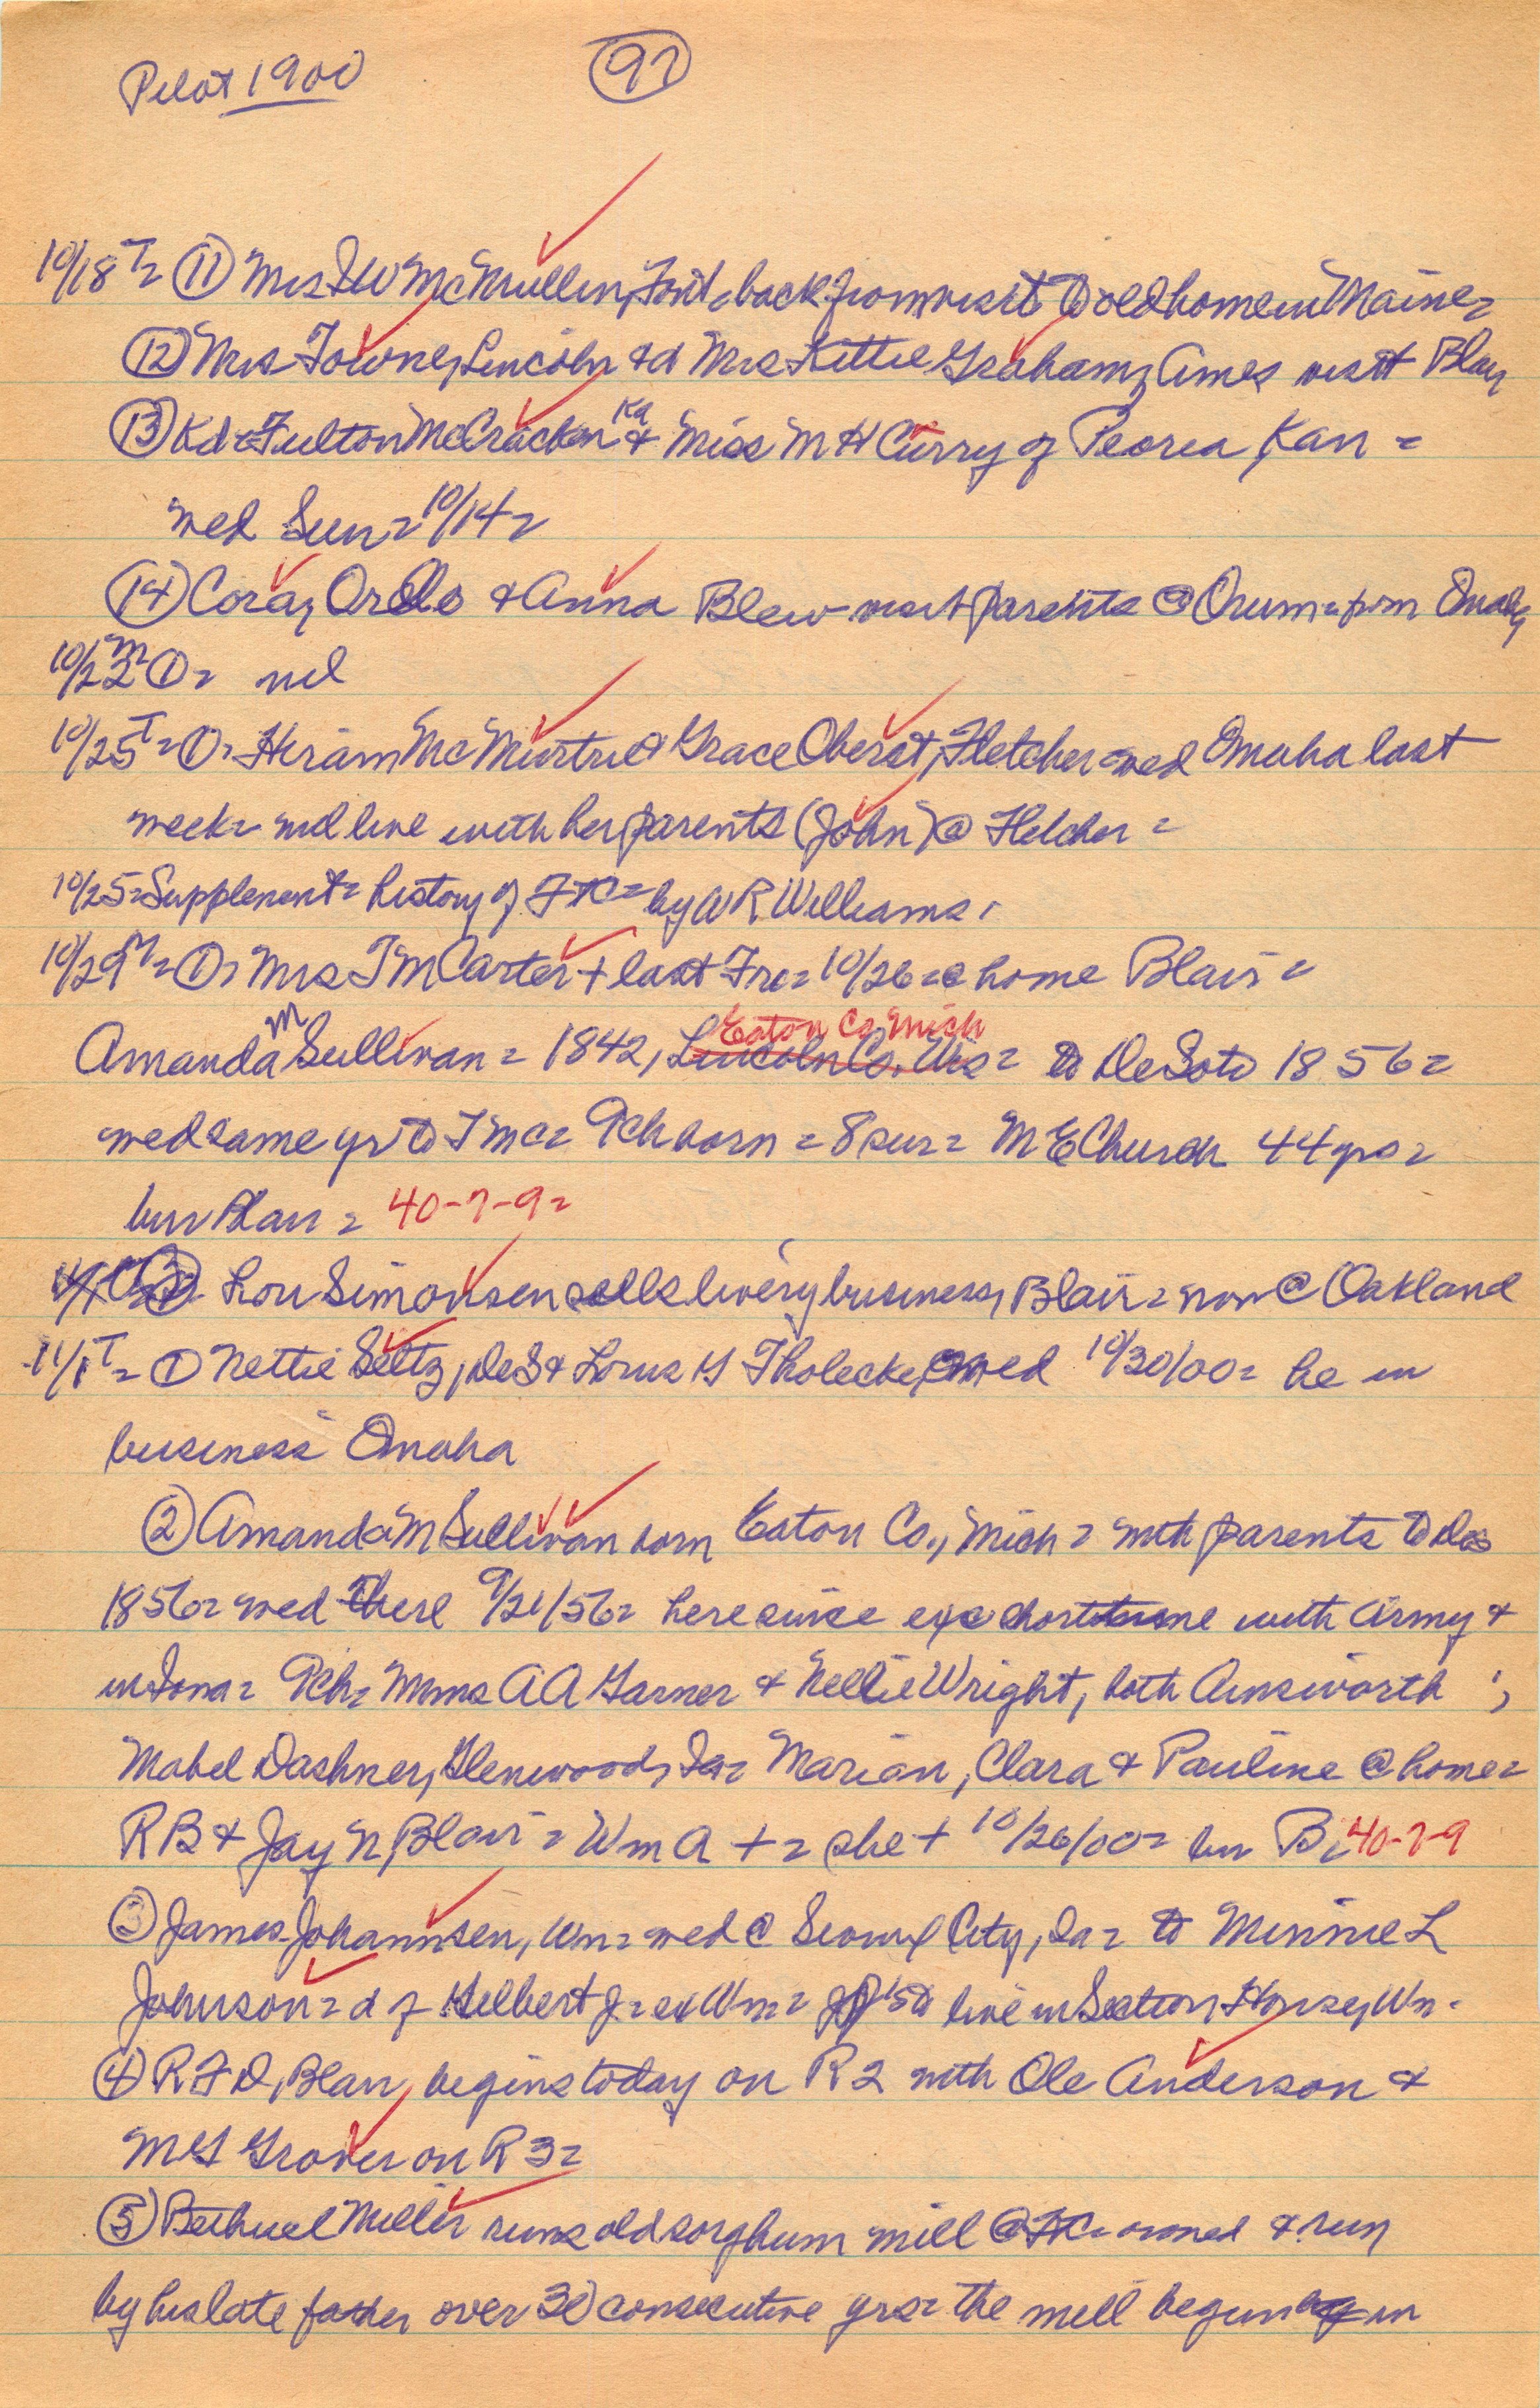 Pilot 1900
97
10/18 T = (11) Mrs J W McMullen, Font, back from visit to old home in Maine =
(12) Mrs Towne, Lincoln & d Mrs Kittie Graham, Ames visit Blair
(13) Kd = Fulton McCracken Ka & Miss M H Curry of Peoria, Kan =
wed Sun = 10/14 =
(14) Cora, & Anna Blew visit parents @ Orum = from Omaha
10/22 M (1) = nil
10/25 T = (1) = Hiram McMurtrie & Grace Oberst, Fletcher wed Omaha last
week = will live with her parents (John) @ Fletcher =
10/25 = Supplement = history of FtC = by W R Williams
10/29 M = (1) = Mrs T M Carter + last Fri = 10/26 = @ home Blair =
Amanda M Sullivan = 1842, Lincoln Co. Wis = Eaton Co Mich to DeSoto 1856 =
wed same yr to T M C = 9 ch born = 8 sur = M E Church 44 yrs =
bur Blair = 40-7-9 =
Lou Simonsen sells livery business, Blair = now @ Oakland
11/1 T = (1) Nettie Seltz, DeS & Louis G Tholecke, wed 10/30/00 = he in
business Omaha
(2) Amanda M Sullivan born Eaton Co., Mich = with parents to DeS
1856 = wed there 9/21/56 = here since exc short time with Army &
in Iowa = 9 ch = Mmes A A Garner & Nellie Wright, both Ainsworth ;
Mabel Dashner, Glenwood, Ia = Marian, Clara & Pauline @ home =
R B & Jay N, Blair = Wm A + = she + 10/26/00 = bur B = 40-7-9
(3) James Johannsen, Wn = wed @ Sioux City, Ia = to Minnie L
Johnson = d of Gilbert J = ex Wn = to live in Section House, Wn =
(4) R F D, Blair, begins today on R 2 with Ole Anderson &
M G Grover on R 3 =
(5) Bethuel Miller runs old sorghum mill @ FtC = owned & run
by his late father over 30 consecutive yrs = the mill begun in